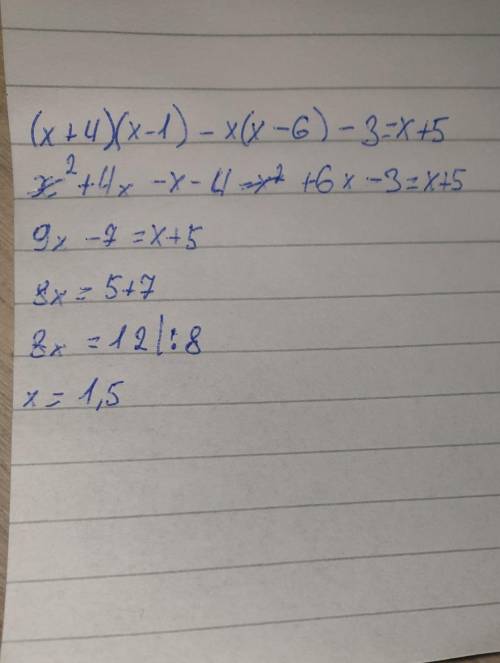 (x+4)(x-1) - x(x-6) - 3 = x+5
x² + 4x - x - 4 - x² + 6x - 3 = x+5
9x - 7 = x+5
8x = 5+7
8x = 12 |:8
x = 1,5